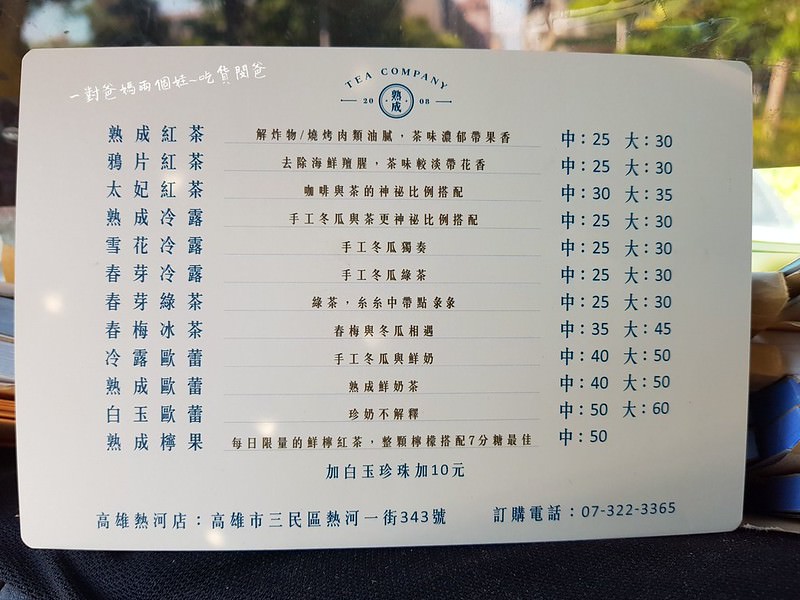 一對爸媽兩個娃~吃貨閔爸
TEA COMPANY
20 熟成 08
熟成紅茶 解炸物/燒烤肉類油膩，茶味濃郁帶果香 中：25 大：30
鴉片紅茶 去除海鮮羶腥，茶味較淡帶花香 中：25 大：30
太妃紅茶 咖啡與茶的神祕比例搭配 中：30 大：35
熟成冷露 手工冬瓜與茶更神祕比例搭配 中：25 大：30
雪花冷露 手工冬瓜獨奏 中：25 大：30
春芽冷露 手工冬瓜綠茶 中：25 大：30
春芽綠茶 綠茶，糸糸中帶點彖彖 中：25 大：30
春梅冰茶 春梅與冬瓜相遇 中：35 大：45
冷露歐蕾 手工冬瓜與鮮奶 中：40 大：50
熟成歐蕾 熟成鮮奶茶 中：40 大：50
白玉歐蕾 珍奶不解釋 中：50 大：60
熟成檸果 每日限量的鮮檸紅茶，整顆檸檬搭配7分糖最佳 中：50
加白玉珍珠加10元
高雄熱河店：高雄市三民區熱河一街343號 訂購電話：07-322-3365